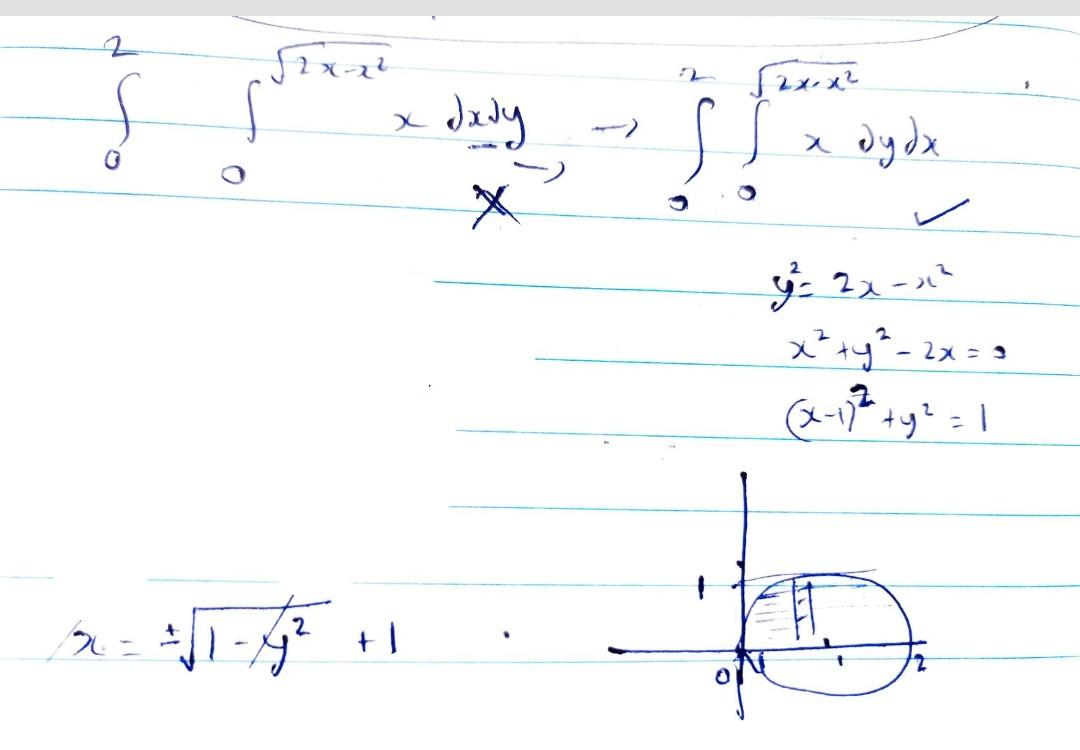 ∫₀² ∫₀^√(2x-x²) x dxdy → ∫₀² ∫₀^√(2x-x²) x dydx
→
X ✓
y² = 2x - x²
x² + y² - 2x = 0
(x-1)² + y² = 1
1
x = ±√(1-y²) + 1
0 1 2